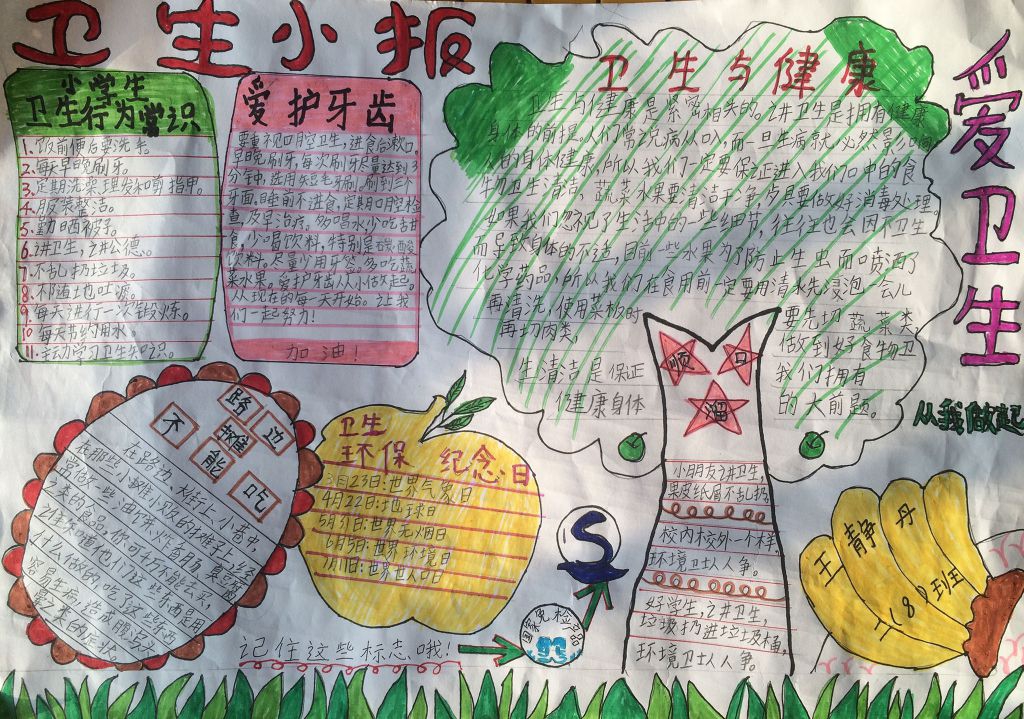 卫生小报
爱卫生
从我做起
小学生
卫生行为常识
1.饭前便后要洗手。
2.每天早晚刷牙。
3.定期洗澡理发和剪指甲。
4.服装整洁。
5.勤晒被子。
6.讲卫生,讲公德。
7.不乱扔垃圾。
8.不随地吐痰。
9.每天进行一次锻炼。
10 每天节约用水。
11.主动学习卫生知识。
爱护牙齿
要重视口腔卫生,进食后漱口,
早晚刷牙,每次刷牙尽量达到3
分钟,选用短毛牙刷。刷到三个
牙面,睡前不进食,定期口腔检
查,及早治疗,多喝水少吃甜
食,少喝饮料,特别是碳酸
饮料。尽量少用牙签。多吃蔬
菜水果。爱护牙齿从小做起。
从现在的每一天开始。让我
们一起努力!
加油!
卫生与健康
卫生与健康是紧密相关的。讲卫生是拥有健康
身体的前提。人们常说病从口入,而一旦生病就必然
的身体健康,所以我们一定要保证进入我们口中的食
物卫生清洁,蔬菜水果要清洁干净,炊具要做好消毒处理。
如果我们忽视了生活中的一些细节,往往也会因不卫生
而导致身体的不适,目前一些水果为了防止生虫而喷洒了
化学药品,所以我们在食用前一定要用清水先浸泡一会儿
再清洗,使用菜板时 要先切蔬菜类,
再切肉类, 做到好食物卫
生清洁是保证 我们拥有
健康身体 的大前题。
顺口溜
小朋友讲卫生,
果皮纸屑不乱扔。
校内校外一个样,
环境卫士人人争。
好学生,讲卫生,
垃圾扔进垃圾桶,
环境卫士人人争。
路边
摊
不能吃
在路边、大街上、小巷中
卫生
环保 纪念日
3月23日:世界气象日
4月22日:地球日
5月31日:世界无烟日
6月5日:世界环境日
7月11日:世界世人口日
记住这些标志哦!
S
国家免检产品
王静丹
一(8)班